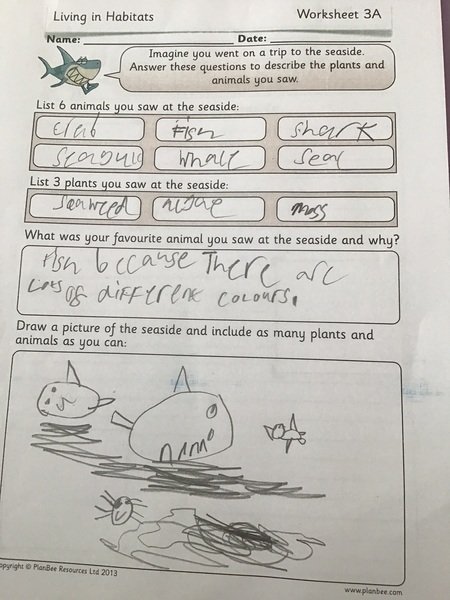 Living in Habitats Worksheet 3A
Name: Date:
Imagine you went on a trip to the seaside.
Answer these questions to describe the plants and
animals you saw.
List 6 animals you saw at the seaside:
crab Fish shark
seagull whale seal
List 3 plants you saw at the seaside:
seaweed algae moss
What was your favourite animal you saw at the seaside and why?
Fish because There are
Lots of different colours.
Draw a picture of the seaside and include as many plants and
animals as you can:
opyright © PlanBee Resources Ltd 2013
www.planbee.com